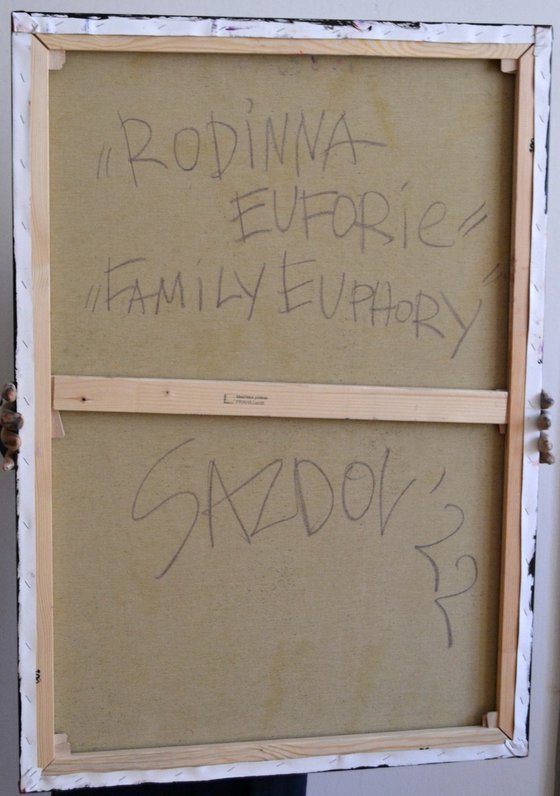 „RODINNA
EUFORIE"
„FAMILY EUPHORY"
SAZDOV
'22
100
100